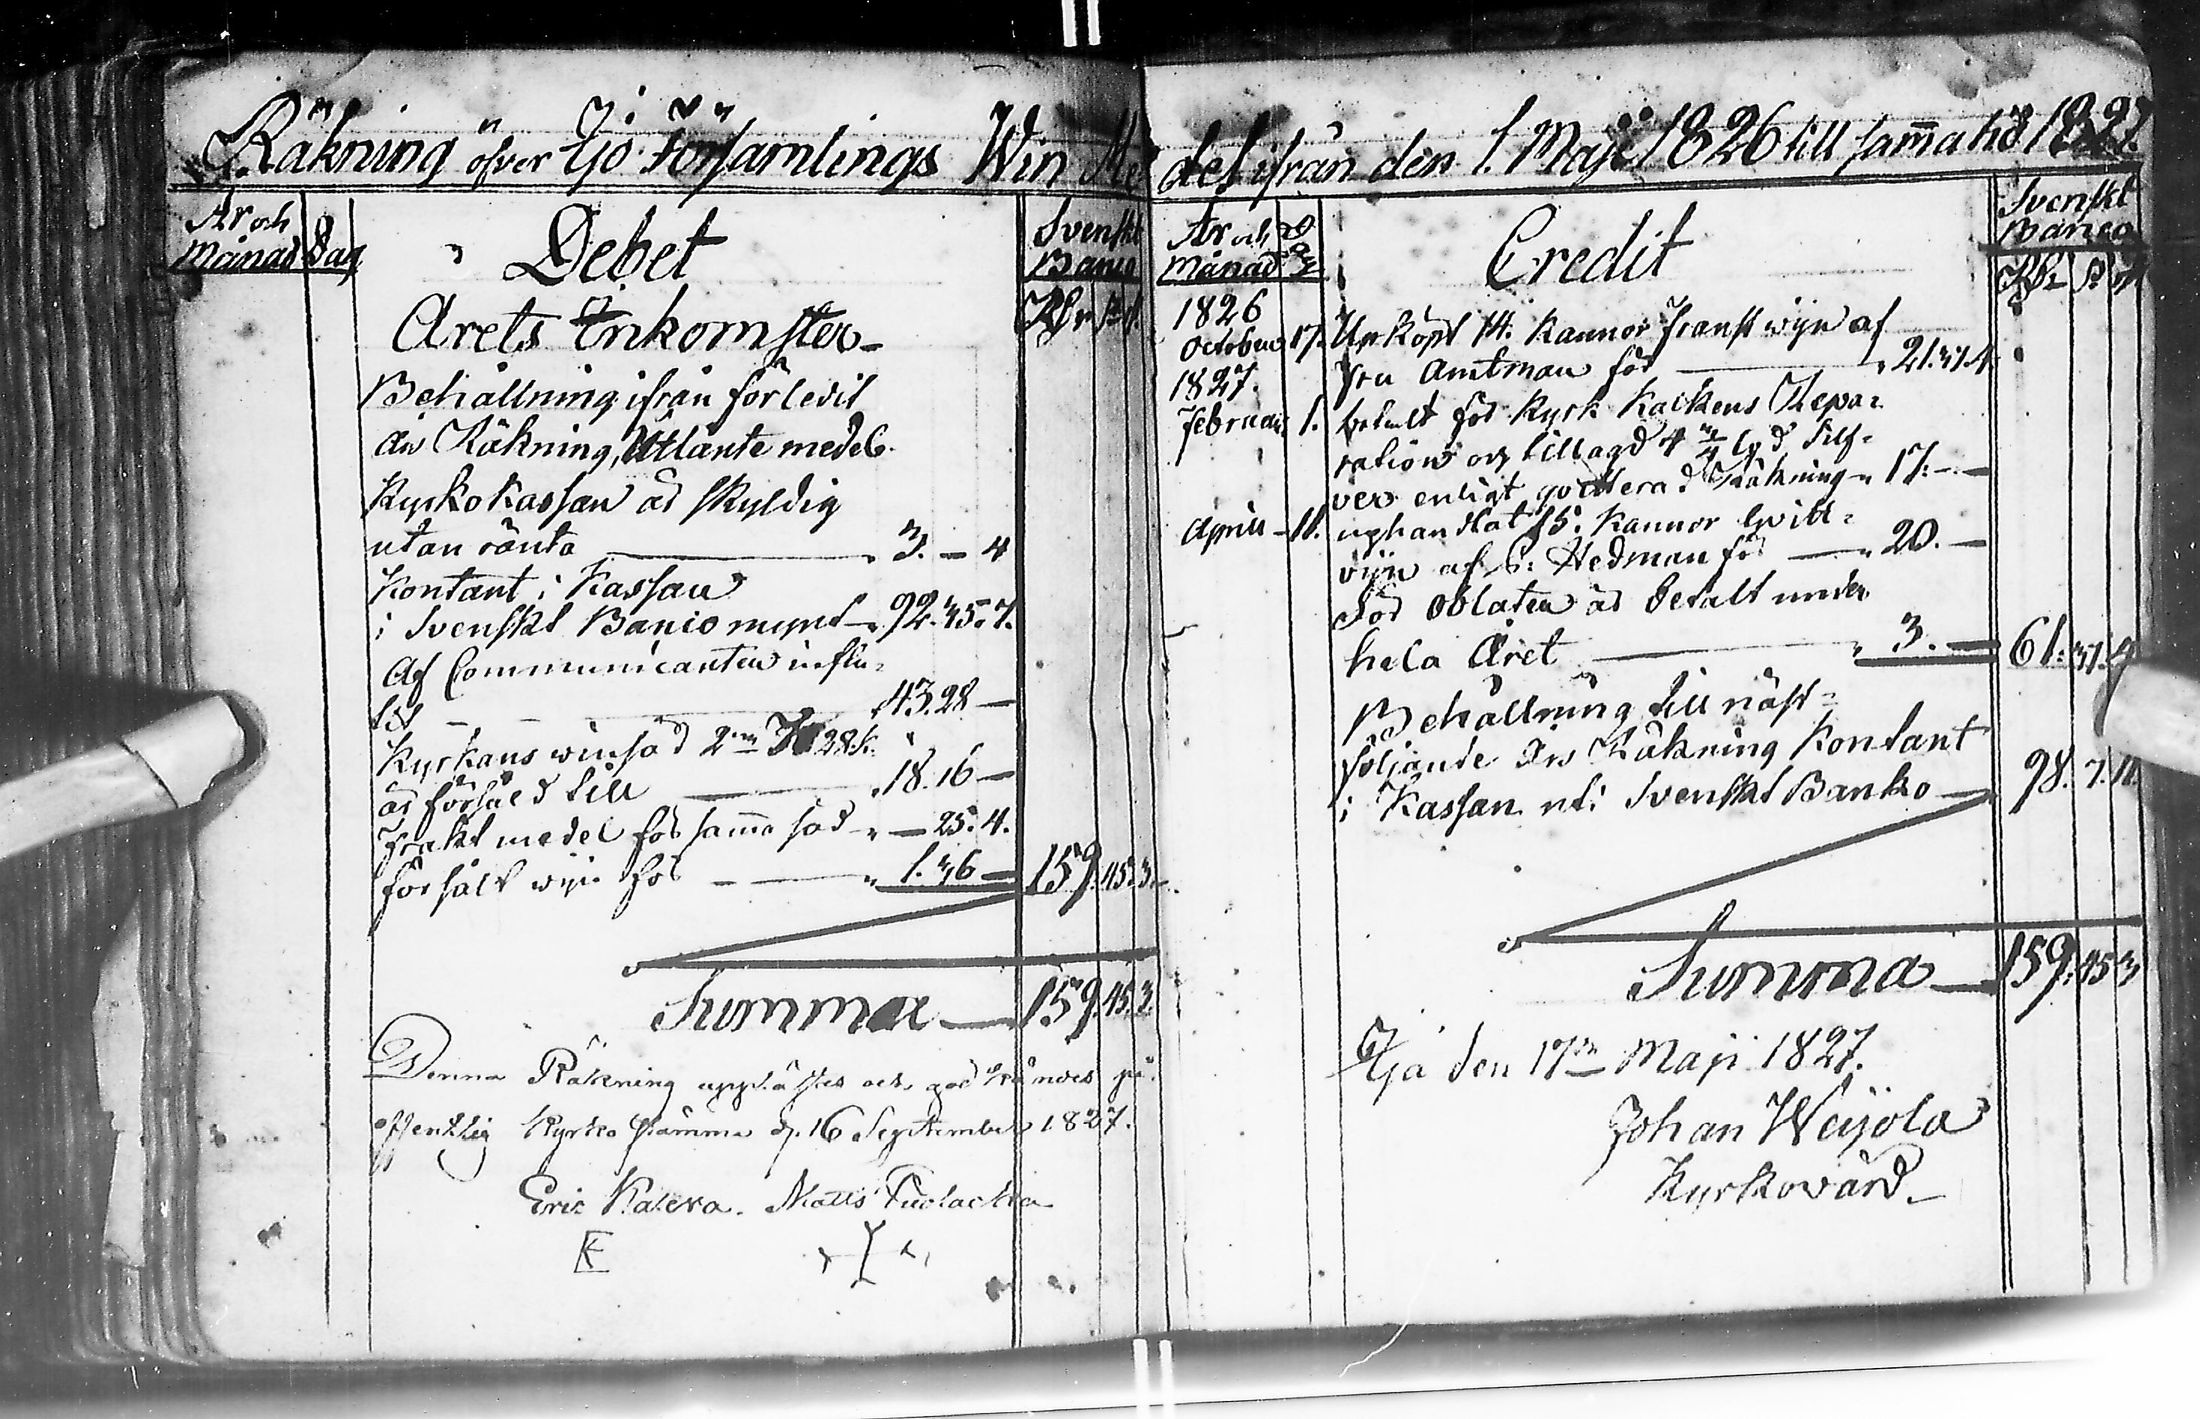 Räkning öfver Ijo Församlings Win Me
År och
Månad Dag
Debet
Svenskt
Banco
Rdr s. r.
Årets Inkomster
Behållning ifrån förledit
års Räkning, Utlånte medel
Kyrko Kassan är skyldig
utan ränta 3. — 4
Kontant i Kassan
i Svenskt Banco mynt 92. 35. 7.
Af Communicanten influ-
tit 43. 28 —
Kyrkans winsäd 28 k.
är försåld till 18. 16 —
Frakt medel för samma säd — 25. 4.
försålt wijn för 1. 36 — 159. 45. 3.
Summa 159. 45. 3.
Denna Räkning upplästes och godkändes på
offentlig Kyrko stämma d. 16 September 1827.
Eric Kakko. Matts
EK
del ifrån den 1. Maji 1826 till samma tid 1827.
År och
Månad
Credit
Svenskt
Banco
Rdr s. r.
1826
October 17. Upköpt 14. Kannor franst wijn af
Fru Amtman för 21. 37. 4.
1827.
Februari 1. betalt för Kyrk Kalkens Repa-
ration och tillagd 4 lod Silf-
ver enligt qvitterad Räkning 17. — —
April 11. uphandlat 15. Kannor hvitt
vijn af Hedman för 20. —
För oblaten är betalt under
hela Året 3. — 61. 37. 4
Behållning till näst-
följande års Räkning Kontant
i Kassan uti Svenskt Banko 98. 7. 11.
Summa 159. 45 3
Ijo den 17de Maji 1827.
Johan Weijola
Kyrkovärd